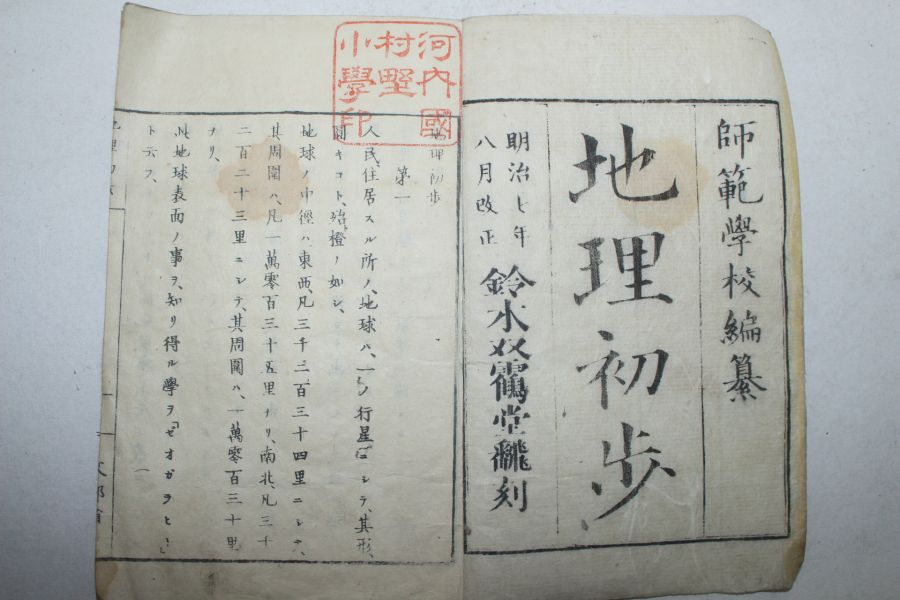 師範學校編纂
地理初歩
明治七年
八月改正
鈴木双鶴堂飜刻
河內國
村野
小學印
地理初歩
第一
人民、住居スル所ノ、地球ハ、一ノ行星ニシテ、其形、
圓キコト、殆橙ノ如シ、
地球ノ中徑ハ、東西、凡三千二百三十四里ニシテ、
其周圍ハ、凡一萬零百三十五里ナリ、南北、凡三千
二百二十三里ニシテ、其周圍ハ、一萬零百三十里
ナリ、
此地球表面ノ事ヲ、知リ得ル學ヲ「ゼオガラヒー」
ト云フ、
一
文部省